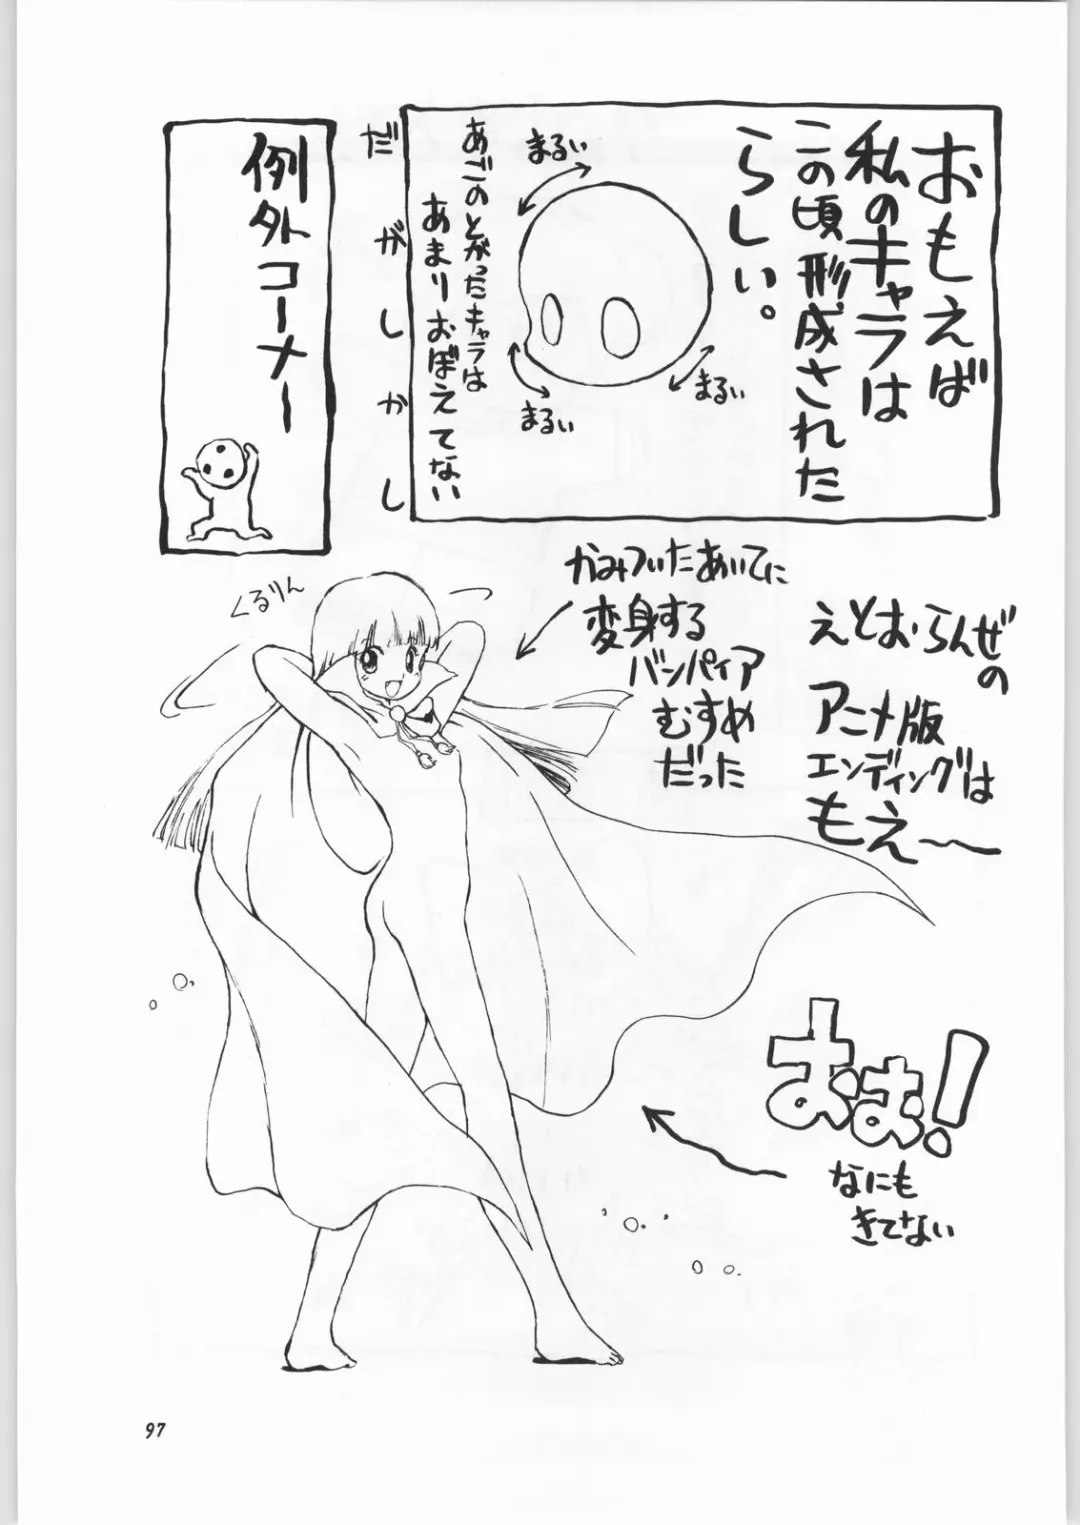 おもえば
私のキャラは
この頃形成された
らしい。
まるい
まるい
まるい
あごのとがったキャラは
あまりおぼえてない
だがしかし
例外コーナー
えとお・らんぜの
アニメ版
エンディングは
もえ〜
かみついたあいてに
変身する
バンパイア
むすめ
だった
くるりん
おお!
なにも
きてない
97